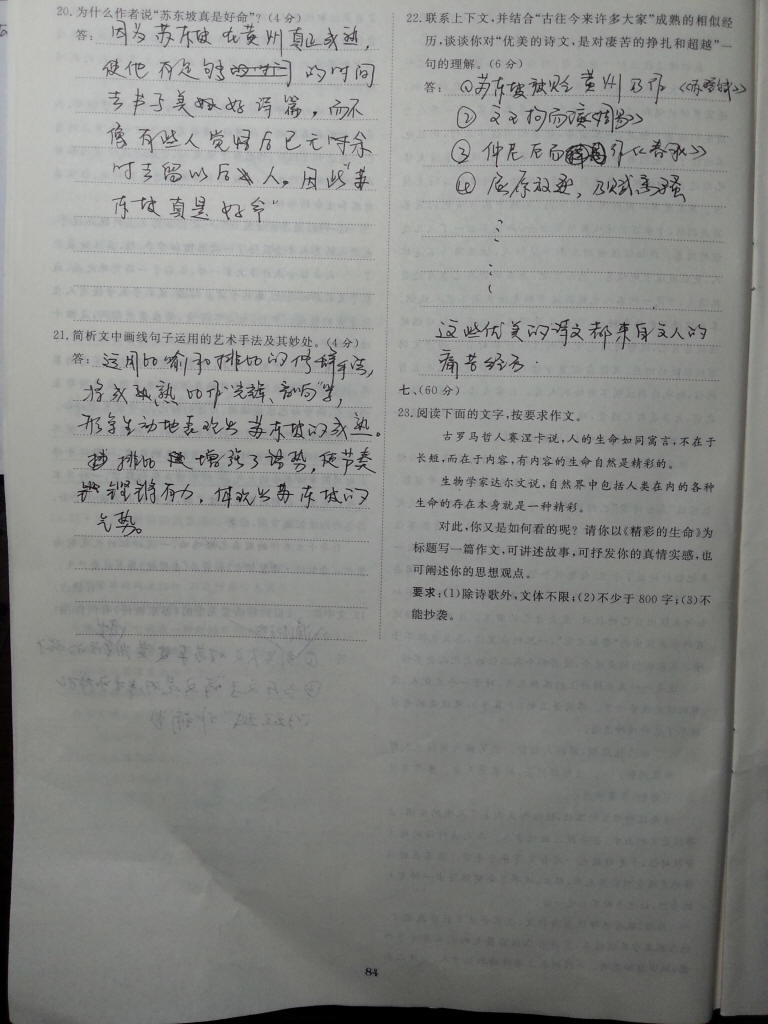 20.为什么作者说“苏东坡真是好命”?(4分)
答:因为苏东坡在黄州真正成熟,
使他有足够的时间
去书写美好诗篇,而不
像有些人觉悟后已无时余
时去留以后人。因此“苏
东坡真是好命”
21.简析文中画线句子运用的艺术手法及其妙处。(4分)
答:运用比喻和排比的修辞手法,
将成熟比作“光辉、音响”等,
形象生动地表现出苏东坡的成熟。
排比增强了语势,使节奏
铿锵有力,体现出苏东坡的
气势。
22.联系上下文,并结合“古往今来许多大家”成熟的相似经
历,谈谈你对“优美的诗文,是对凄苦的挣扎和超越”一
句的理解。(6分)
答:①苏东坡被贬黄州乃作《赤壁赋》
②文王拘而演《周易》
③仲尼厄而作《春秋》
④屈原放逐,乃赋离骚
这些优美的诗文都来自文人的
痛苦经历.
七、(60分)
23.阅读下面的文字,按要求作文。
古罗马哲人赛涅卡说,人的生命如同寓言,不在于
长短,而在于内容,有内容的生命自然是精彩的。
生物学家达尔文说,自然界中包括人类在内的各种
生命的存在本身就是一种精彩。
对此,你又是如何看的呢?请你以《精彩的生命》为
标题写一篇作文,可讲述故事,可抒发你的真情实感,也
可阐述你的思想观点。
要求:(1)除诗歌外,文体不限;(2)不少于800字;(3)不
能抄袭。
84